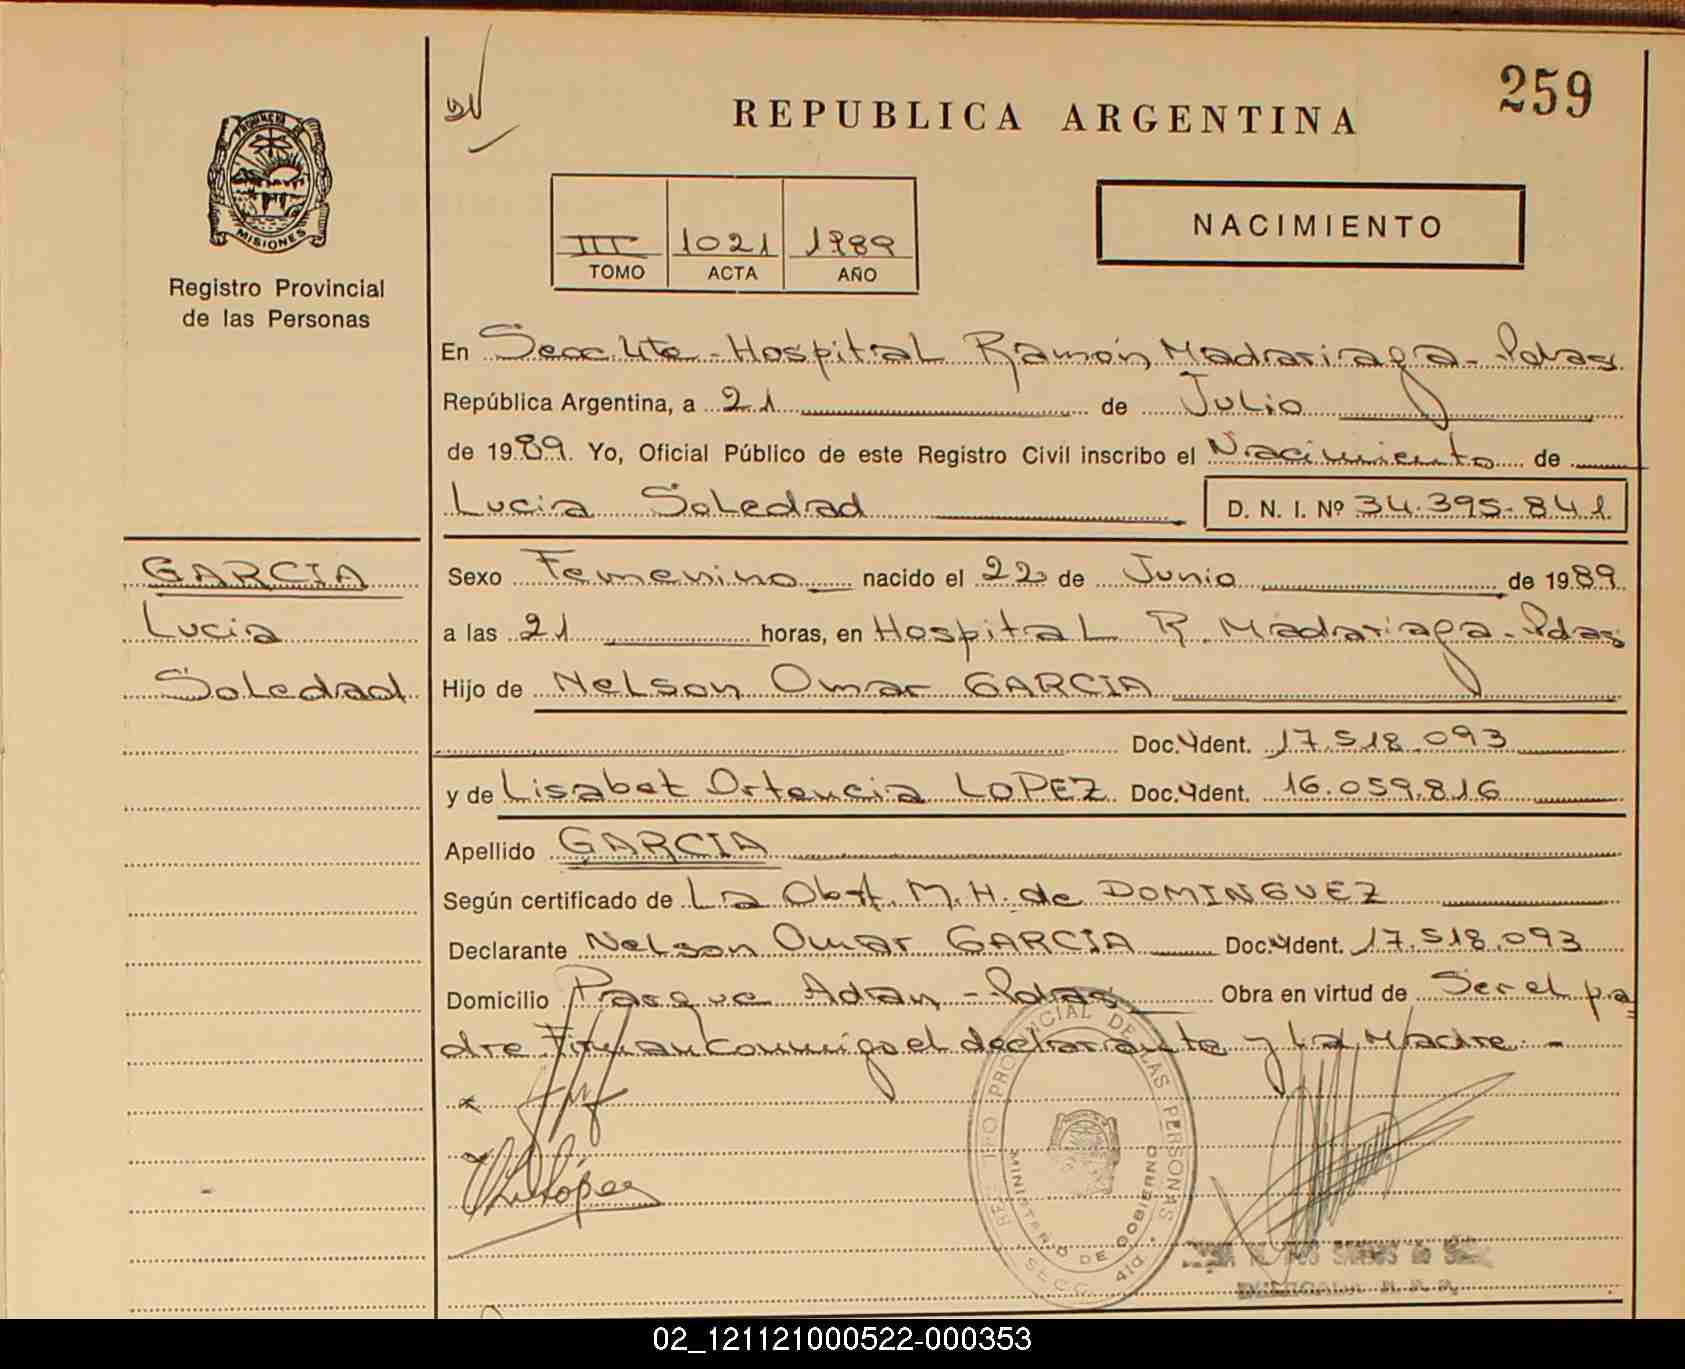 259
REPUBLICA ARGENTINA
PROVINCIA DE
MISIONES
Registro Provincial
de las Personas
III 1021 1989
TOMO ACTA AÑO
NACIMIENTO
En Secc 4ta - Hospital Ramón Madariaga - Pdas
República Argentina, a 21 de Julio
de 1989. Yo, Oficial Público de este Registro Civil inscribo el Nacimiento de
Lucia Soledad D. N. I. Nº 34.395.841
GARCIA
Lucia
Soledad
Sexo Femenino nacido el 22 de Junio de 1989
a las 21 horas, en Hospital R. Madariaga - Pdas
Hijo de Nelson Omar GARCIA
Doc. Ydent. 17.518.093
y de Lisabet Ortencia LOPEZ Doc. Ydent. 16.059.816
Apellido GARCIA
Según certificado de La Obst. M. H. de DOMINGUEZ
Declarante Nelson Omar GARCIA Doc. Ydent. 17.518.093
Domicilio Parque Adan - Pdas Obra en virtud de Ser el pa
dre Firman conmigo el declarante y La Madre. -
López
REGISTRO PROVINCIAL DE LAS PERSONAS
MINISTERIO DE GOBIERNO
SECC. 4ta
DOS SANTOS de
DELEGADA R. P. P.
02_121121000522-000353